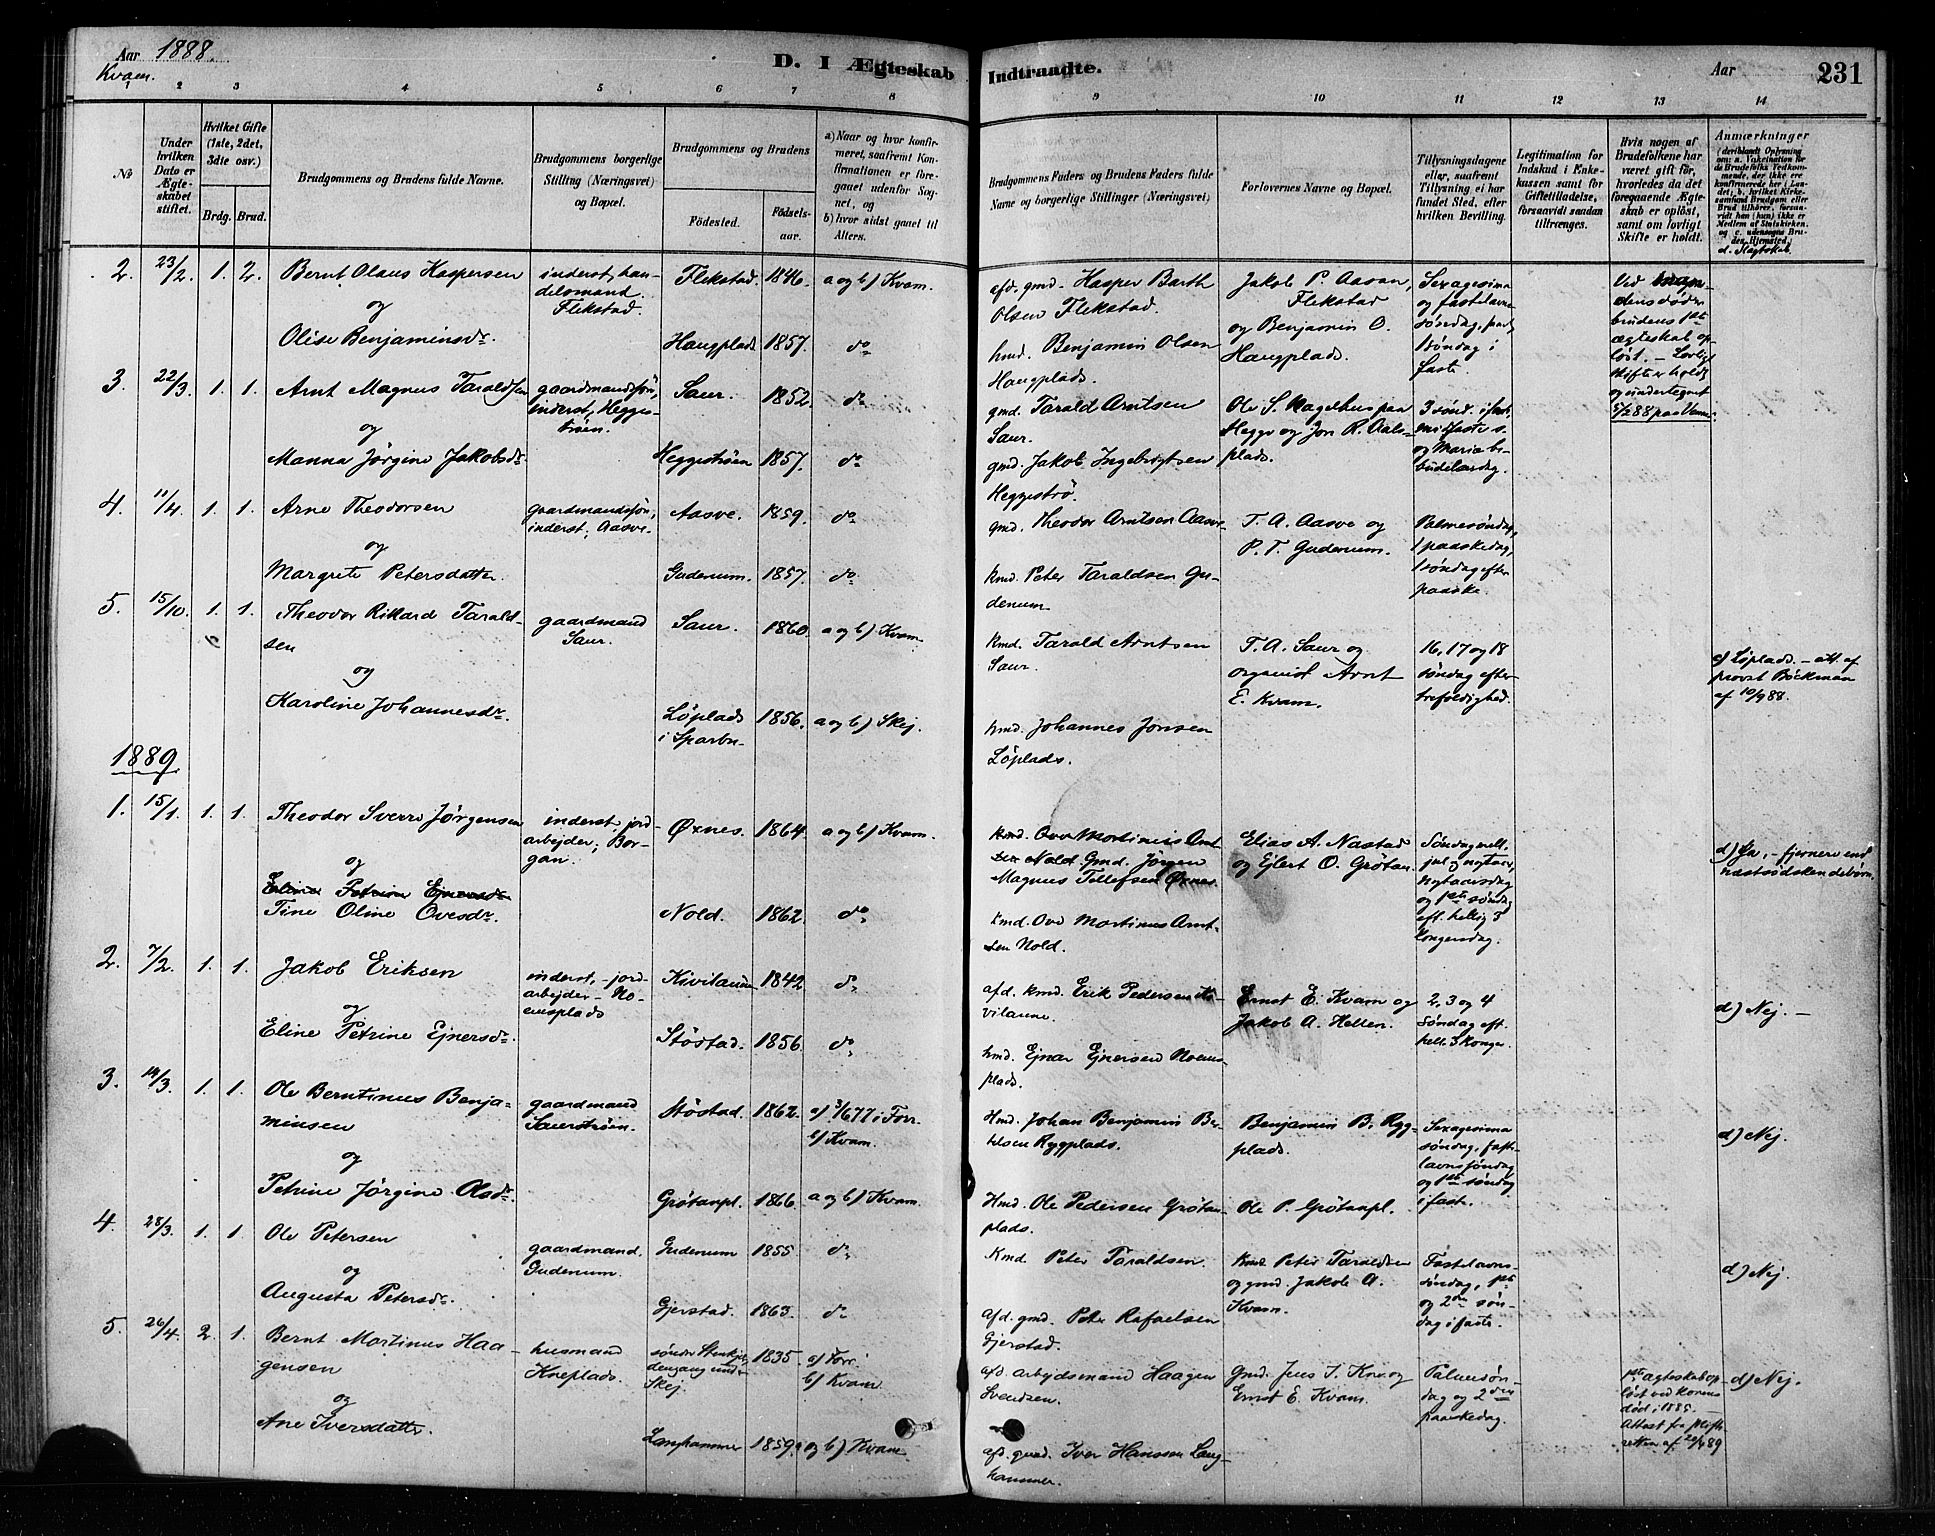 Aar 1888.
Kvam.
D. I Ægteskab Indtraadte.
Aar
231
1 2 3 4 5 6 7 8 9 10 11 12 13 14
No
Under hvilken Dato er Ægteskabet stiftet.
Hvilket Gifte (1ste, 2det, 3die osv.)
Brdg. Brud.
Brudgommens og Brudens fulde Navne.
Brudgommens borgerlige Stilling (Næringsvei) og Bopæl.
Brudgommens og Brudens
Fødested.
Fødselsaar.
a) Naar og hvor konfirmeret, saafremt Konfirmationen er foregaaet udenfor Sognet, og
b) hvor sidst gaaet til Alters.
Brudgommens Faders og Brudens Faders fulde Navne og borgerlige Stillinger (Næringsvei)
Forlovernes Navne og Bopæl.
Tillysningsdagene eller, saafremt Tillysning ei har fundet Sted, efter hvilken Bevilling.
Legitimation for Indskud i Enkekassen samt for Giftetilladelse, forsaavidt saadan tiltrænges.
Hvis nogen af Brudefolkene har været gift før, hvorledes da det foregaaende Ægteskab er opløst, samt om lovligt Skifte er holdt.
Anmærkninger
d. Slegtskab.
2. 23/2. 1. 2. Bernt Olaus Kaspersen
og
Olise Benjaminsdr.
inderst, handelsmand. Flekstad.
Flekstad. 1846. a og b) Kvam.
Haugplads 1857. do
afd. gmd. Kasper Barth Olsen Flekstad.
hmd. Benjamin Olsen Haugplads.
Jakob P. Aasan, Flekstad og Benjamin O. Haugplads.
Sexagesima og fastelavnssøndag, paa 1 søndag i faste.
Ved
brudens 1ste ægteskab opløst. – Lovligt skifte er holdt
3. 22/3. 1. 1. Arnt Magnus Taraldsen
og
Manna Jørgine Jakobsdr.
gaardmandssøn, inderst, Heggestrøen.
Saur. 1852. do
Heggestrøen 1857. do
gmd. Tarald Arntsen Saur.
gmd. Jakob Ingebrigtsen Heggestrø.
Ole S. Kagelhus paa Hegge og Jon R. Aalsplads.
3 sønd. i faste, midfaste s. og Maria bebudelsesdag.
4. 11/4. 1. 1. Arne Theodorsen
og
Margrete Petersdatter.
gaardmandssøn, inderst, Aasve.
Aasve. 1859. do
Gudenum. 1857. do
gmd. Theodor Arntsen Aasve
kmd. Peter Taraldsen Gudenum
T. A. Aasve og P. T. Gudenum.
Palmesøndag, 1 paaskedag, 1 søndag efter paaske.
5. 15/10. 1. 1. Theodor Rikard Taraldsen
og
Karoline Johannesdr.
gaardmand Saur.
Saur. 1860. a og b) Kvam
Løplads i Sparbu 1856. a og b) Skej.
kmd. Tarald Arntsen Saur.
hmd. Johannes Jonsen Løplads.
T. A. Saur og organist Arnt E. Kvam.
16, 17 og 18 søndag efter trefoldighed.
c) Løplads. – att. af provst Bøckman af 10/9 88.
1889
1. 15/1. 1. 1. Theodor Sverre Jørgensen
og
Eline Petrine Ejnersdr
Tine Oline Ovesdr.
inderst, jordarbejder; Borgan.
Øxnes. 1864. a og b) Kvam.
Nold. 1862. do
kmd. Ove Mortinus Arntsen Nold Gmd. Jørgen Magnus Tollefsen Øxnes
kmd. Ove Mortinus Arntsen Nold.
Elias A. Nastad og Ejlert O. Grøtan.
Søndag mell. jul og nytaar, nytaarsdag og 1ste søndag eft. hellig 3 kongersdag.
d) Ja, – fjernere end næstsødskendebørn.
2. 7/2. 1. 1. Jakob Eriksen
og
Eline Petrine Ejnersdr.
inderst, – jordarbejder – Noemsplads
1842 do
Støstad. 1856. do
afd. kmd. Erik Pedersen
hmd. Ejnar Ejnersen Noemsplads.
Ernst E. Kvam og Jakob A. Hellen.
2, 3 og 4 søndag eft. hell. 3 konger.
d) Nej. –
3. 14/3. 1. 1. Ole Berntinus Benjaminsen
og
Petrine Jørgine Olsdr
gaardmand Saurstrøen.
Støstad. 1862. a) 3/6 77 i Forr. b) Kvam.
Grøtanpl. 1866. a og b) Kvam.
Hmd. Johan Benjamin Bertelsen Ryggplads.
Hmd. Ole Pedersen Grøtanplads.
Benjamin B. Ryggplads.
Ole P. Grøtanpl.
Sexagesima søndag, fastelavnssøndag og 1ste søndag i fast.
d) Nej.
4. 28/3. 1. 1. Ole Petersen
og
Augusta Petersdr.
gaardmand. Gudenum.
Gudenum 1855. do
Gjerstad. 1863. do
Kmd. Peter Taraldsen.
afd. gmd. Peter Rafaelsen Gjerstad.
Kmd. Peter Taraldsen og gmd. Jakob A. Kvam.
Fastelavnssøndag, 1ste og 2den søndag i faste.
d) Nej.
5. 26/4. 2. 1. Bernt Mortinus Haagensen
og
Ane Iversdatter.
husmand Kneplads.
Skej. 1835. a) Forr. b) Kvam
Langhammer 1859. a og b) Kvam.
afd. arbejdsmand Haagen Svendsen.
afd. gmd. Iver Hansen Langhammer.
Gmd. Jens J. Kne og Ernst E. Kvam.
Palmesøndag og 2den paaskedag.
1ste ægteskab opløst ved konens død i 1885. – Attest fra skifteretten af 20/4 89
d) Nej.